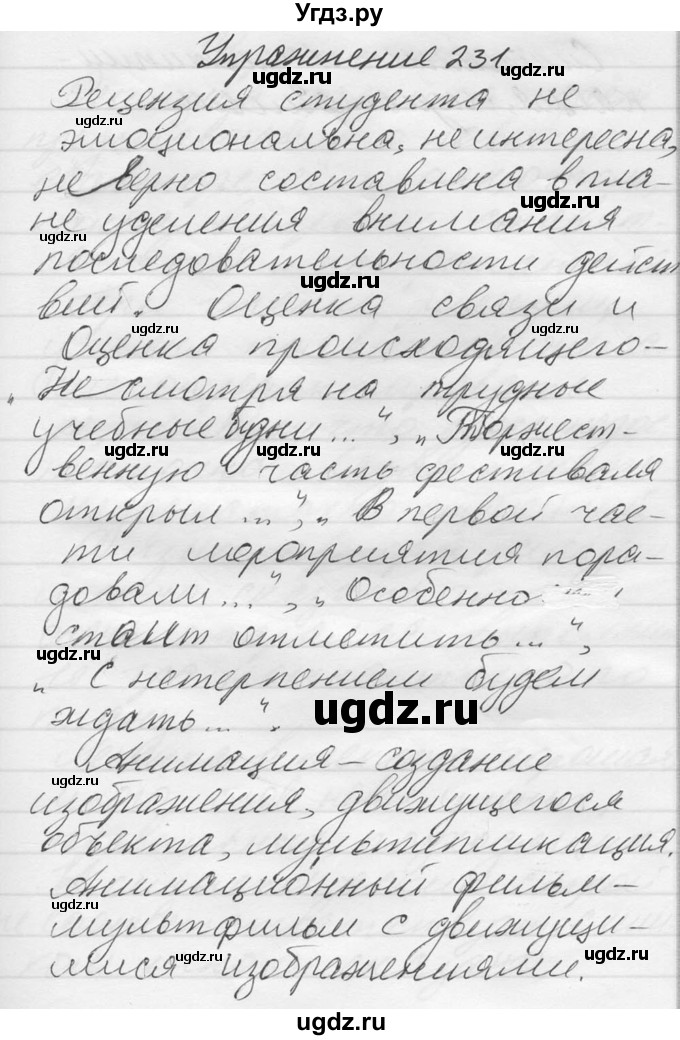 Угдз.ру
Упражнение 231
Рецензия студента не
эмоциональна, не интересна,
не верно составлена в пла-
не уделения внимания
последовательности дейст
вий. Оценка связи и
Оценка происходящего-
"Не смотря на трудные
учебные будни...", "Торжест-
венную часть фестиваля
открыл...", "В первой час-
ти мероприятия пора-
довали...", "Особенно
стаит отметить...",
"С нетерпением будем
ждать...".
Анимация - создание
изображения, движущегося
объекта, мультипликация.
Анимационный фильм-
мультфильм с движущи-
мися изображениями.
ugdz.ru